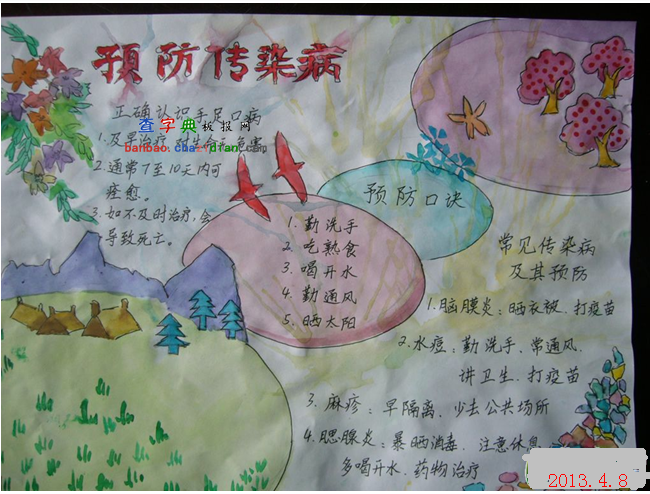 预防传染病
正确认识手足口病
查字典板报网
banbao.chazidian.com
1.及早治疗,对生命无危害
2.通常7至10天内可
痊愈。
3.如不及时治疗,会
导致死亡。
预防口诀
1.勤洗手
2.吃熟食
3.喝开水
4.勤通风
5.晒太阳
常见传染病
及其预防
1.脑膜炎:晒衣被、打疫苗
2.水痘:勤洗手、常通风、
讲卫生、打疫苗
3.麻疹:早隔离、少去公共场所
4.腮腺炎:暴晒消毒、注意休息
多喝开水、药物治疗
2013.4.8